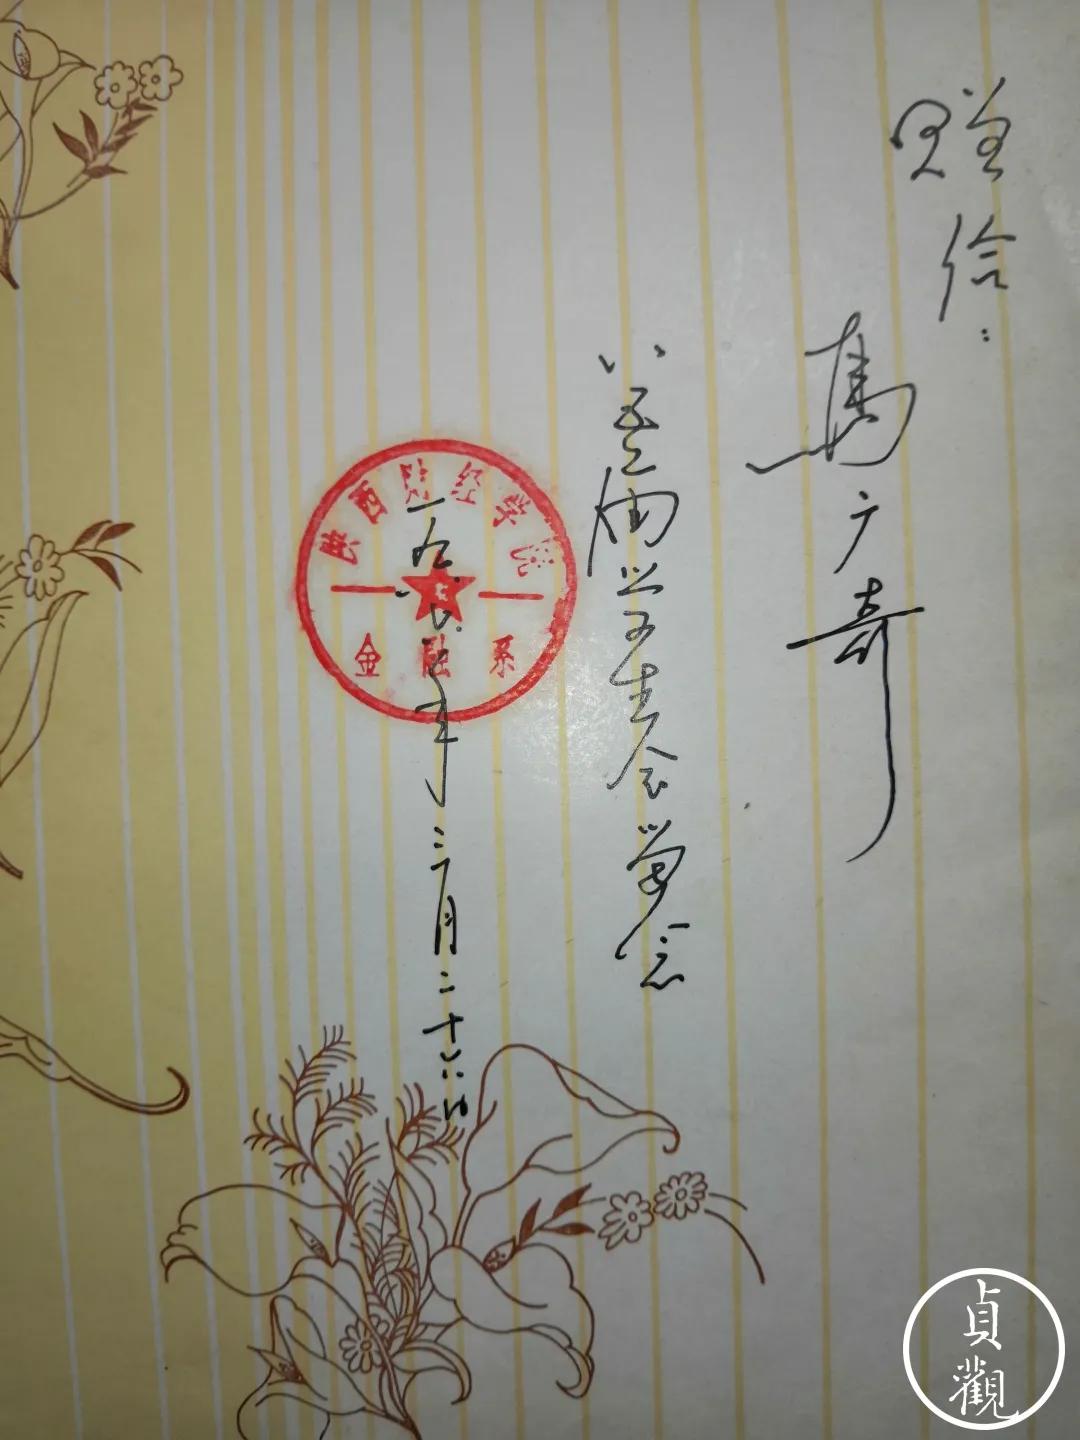 赠给:
馬广奇
八五届学生会留念
一九八五年三月二十六日
陕西财经学院
金融系
貞觀